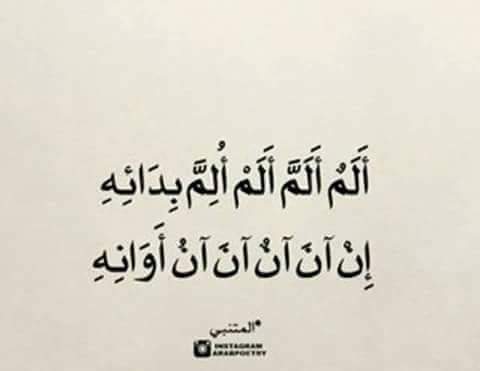 أَلَمٌ أَلَمَّ أَلَمْ أُلِمَّ بِدَائِهِ
إِنْ آنَ آنٌ آنَ آنُ أَوَانِهِ
*المتنبي
INSTAGRAM
ARABPOETRY